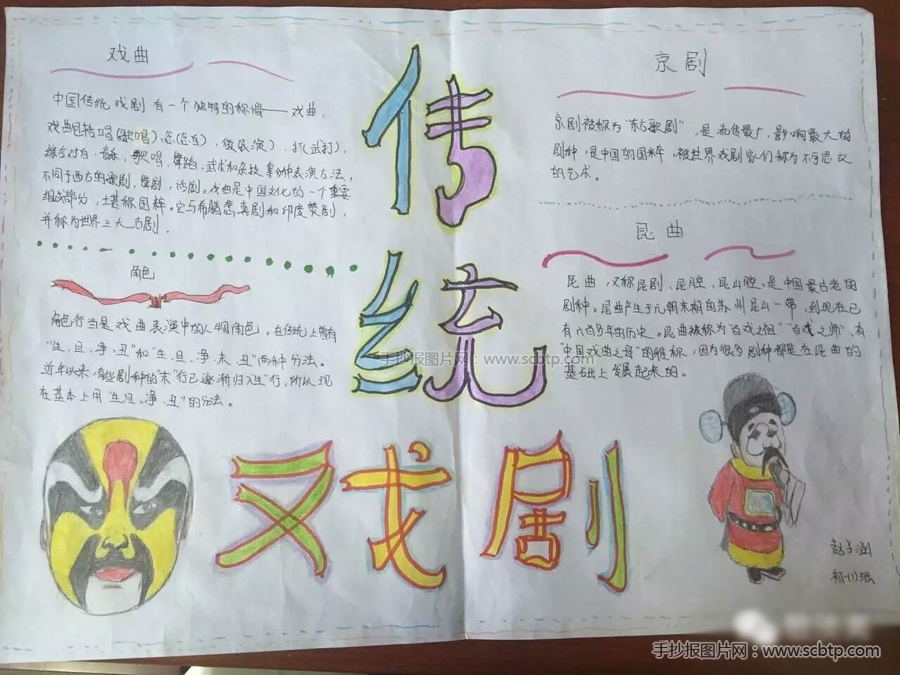 戏曲
中国传统戏剧有一个独特的称谓——戏曲,
戏曲包括唱(歌唱)、念(念白)、做(表演)、打(武打),
综合对白、音乐、歌唱、舞蹈、武术和杂技等多种表演方法,
不同于西方的歌剧、舞剧、话剧。戏曲是中国文化的一个重要
组成部分,堪称国粹。它与希腊悲喜剧和印度梵剧,
并称为世界三大古剧.
角色
角色行当是戏曲表演中的人物角色。在传统上意有
"生、旦、净、丑"和"生、旦、净、末、丑"两种分法。
近年以来,有些剧种的"末"行已逐渐归入"生"行,所以现
在基本上用"生、旦、净、丑"的分法。
传统
戏剧
京剧
京剧被称为"东方歌剧",是流传最广,影响最大的
剧种,是中国的国粹,被世界戏剧家们称为不可思议
的艺术。
昆曲
昆曲,又称昆剧、昆腔、昆山腔,是中国最古老的
剧种。昆曲产生于元朝末期的苏州昆山一带,到现在已
有六百多年的历史。昆曲被称为"百戏之祖""百戏之师",有
"中国戏曲之母"的雅称,因为很多剧种都是在昆曲的
基础上发展起来的。
赵子涵
初一(1)班
手抄报图片网:www.scbtp.com
手抄报图片网:www.scbtp.com